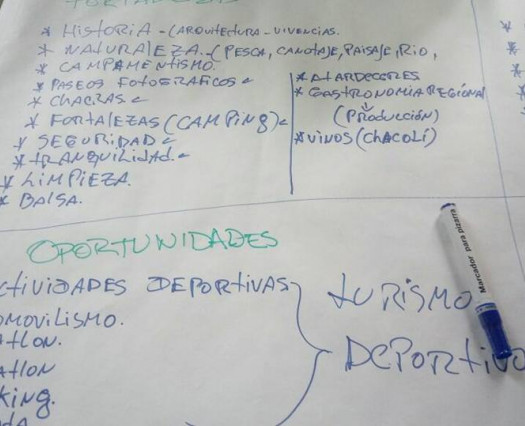 FORTALEZAS
* HISTORIA - (ARQUITECTURA - VIVENCIAS.
* NATURALEZA. (PESCA, CANOTAJE, PAISAJE, RIO,
* CAMPAMENTISMO.
* PASEOS FOTOGRAFICOS
* CHACRAS
* FORTALEZAS (CAMPING)
* SEGURIDAD
* TRANQUILIDAD.
* LIMPIEZA.
* BALSA.
* ATARDECERES
* GASTRONOMIA REGIONAL
(PRODUCCIÓN)
* VINOS (CHACOLÍ)
OPORTUNIDADES
CTIVIDADES DEPORTIVAS
OMOVILISMO.
ATLON.
ATLON
KING.
TURISMO
DEPORTIVO
Marcador para pizarra